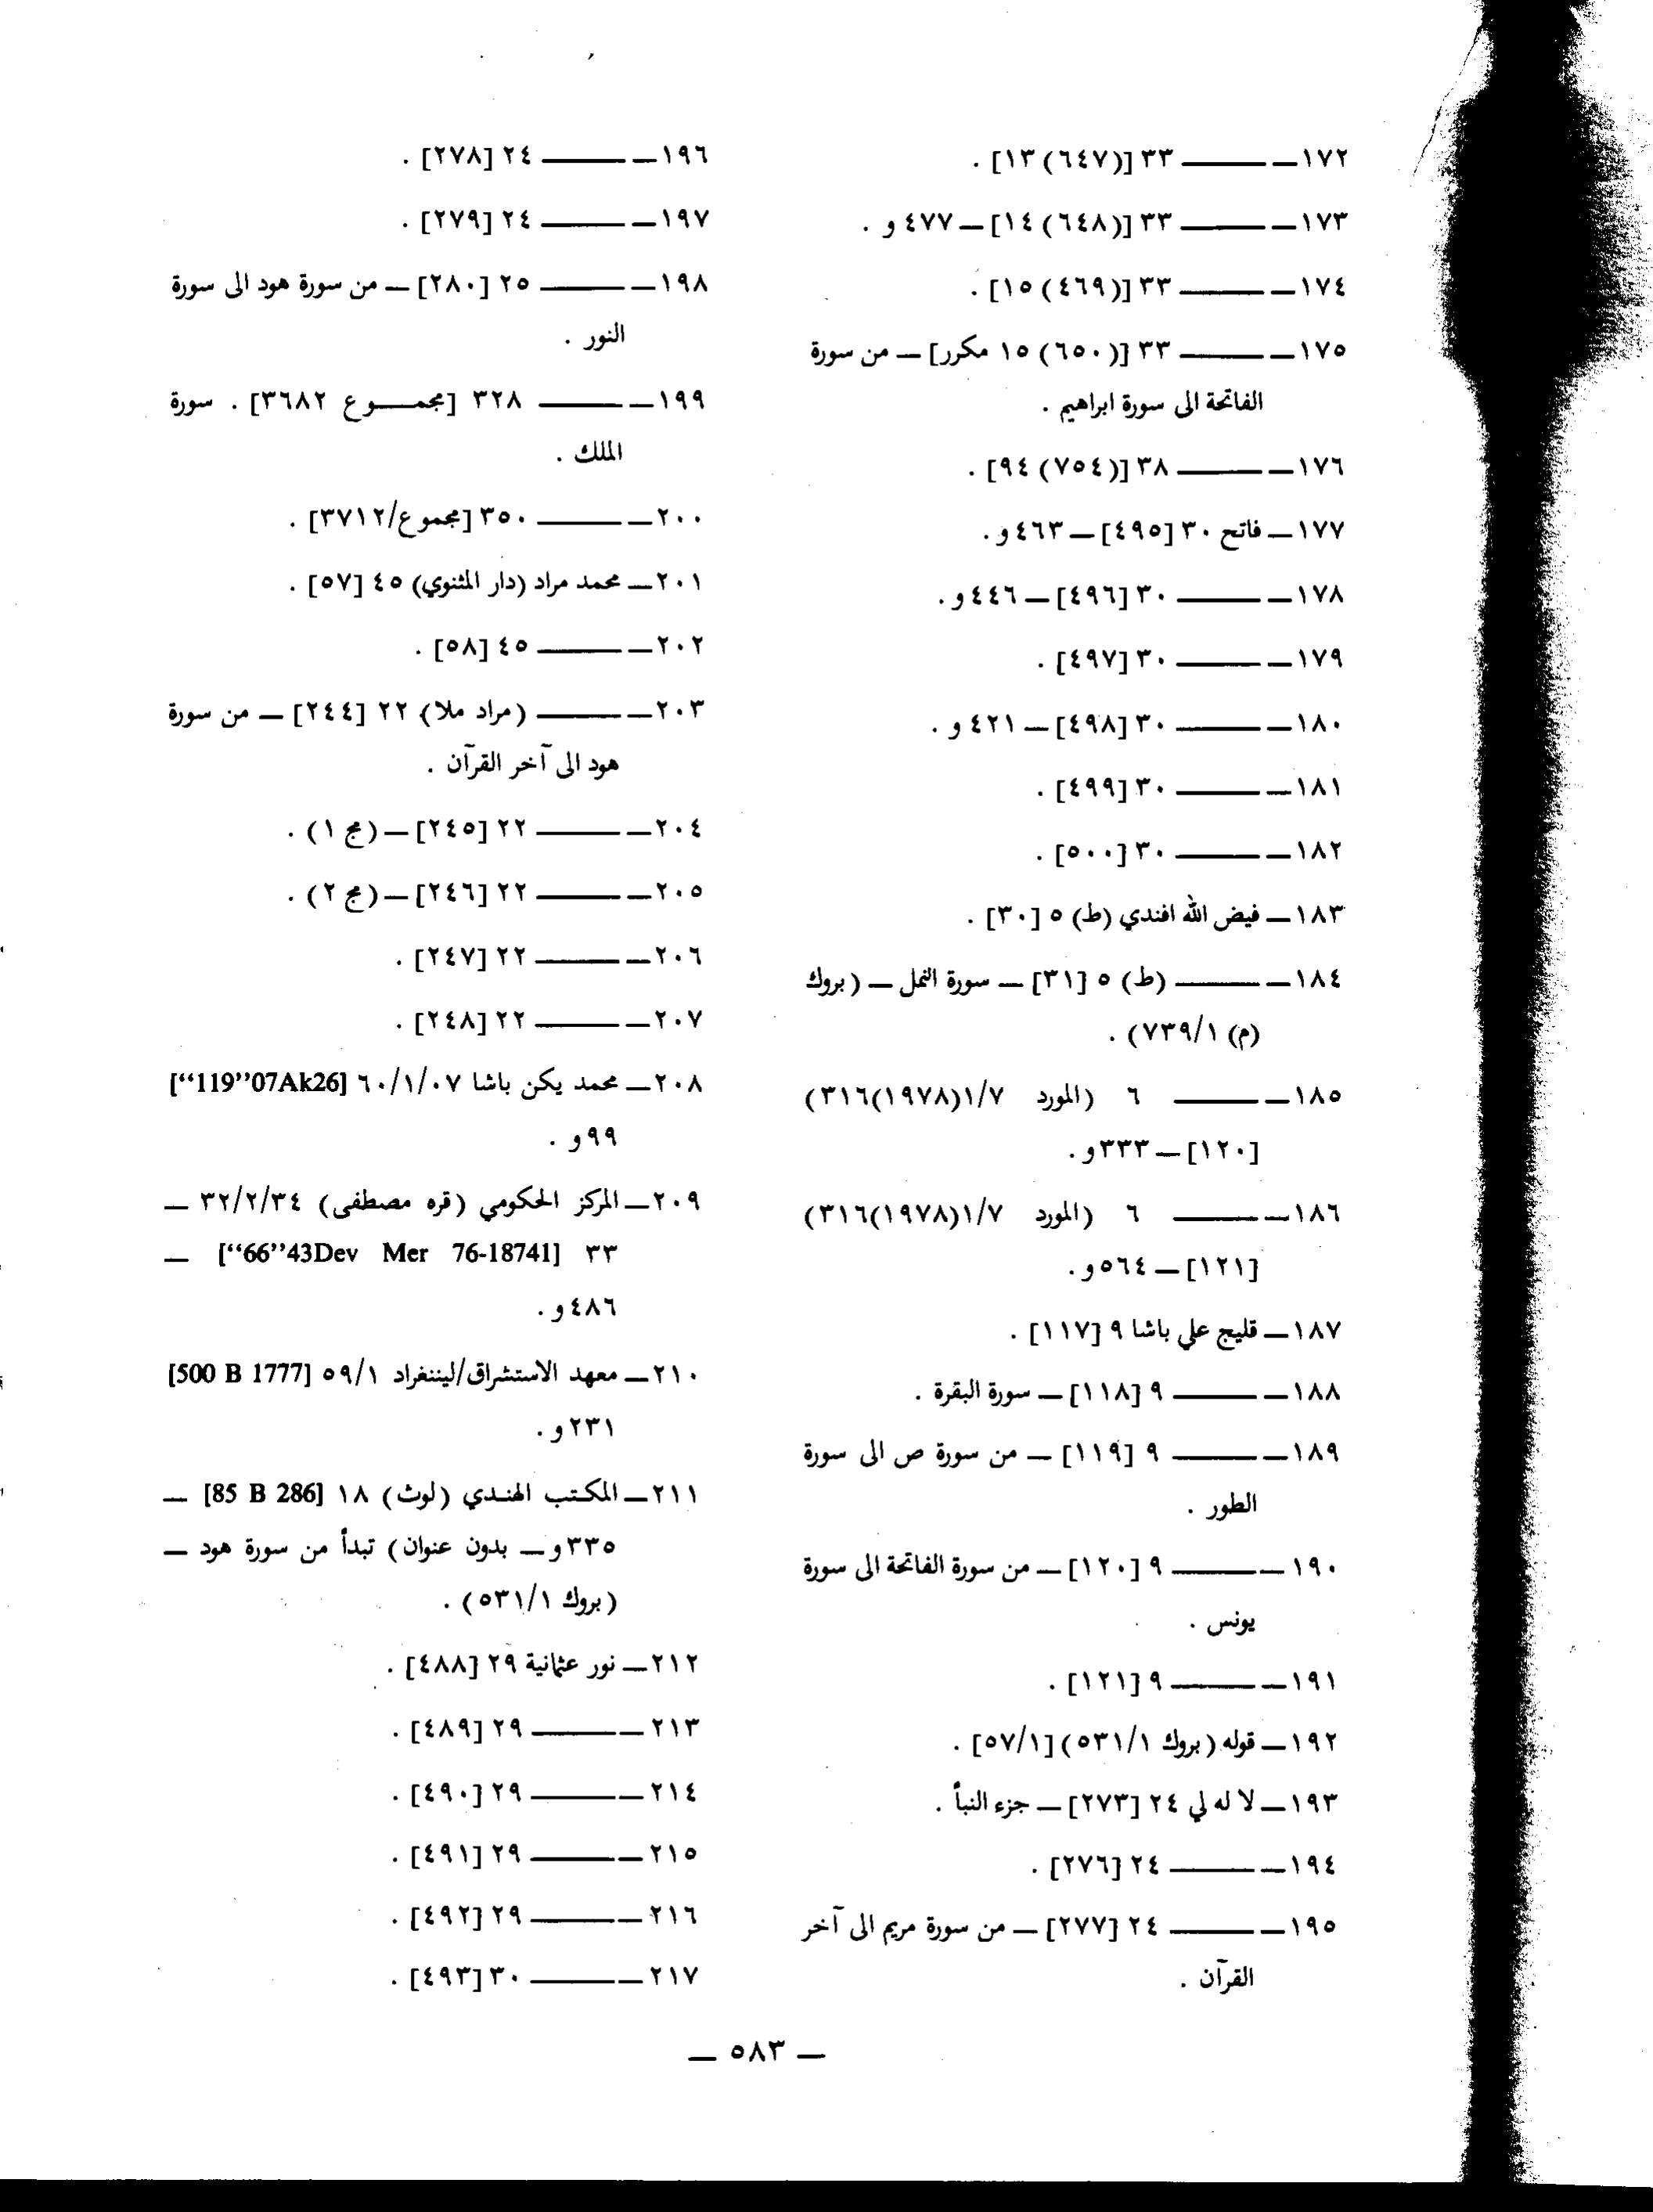 ١٧٢ــ ـــــــ ٣٣ [(٦٤٧) ١٣] .
١٧٣ــ ـــــــ ٣٣ [(٦٤٨) ١٤] ــ ٤٧٧ و .
١٧٤ــ ـــــــ ٣٣ [(٤٦٩) ١٥] .
١٧٥ــ ـــــــ ٣٣ [(٦٥٠) ١٥ مكرر] ــ من سورة
الفاتحة الى سورة ابراهيم .
١٧٦ــ ـــــــ ٣٨ [(٧٥٤) ٩٤] .
١٧٧ــ فاتح ٣٠ [٤٩٥] ــ ٤٦٣ و .
١٧٨ــ ـــــــ ٣٠ [٤٩٦] ــ ٤٤٦ و .
١٧٩ــ ـــــــ ٣٠ [٤٩٧] .
١٨٠ــ ـــــــ ٣٠ [٤٩٨] ــ ٤٢١ و .
١٨١ــ ـــــــ ٣٠ [٤٩٩] .
١٨٢ــ ـــــــ ٣٠ [٥٠٠] .
١٨٣ــ فيض الله افندي (ط) ٥ [٣٠] .
١٨٤ــ ـــــــ (ط) ٥ [٣١] ــ سورة النمل ــ (بروك
(م) ٧٣٩/١) .
١٨٥ــ ـــــــ ٦ (المورد ١/٧(١٩٧٨)٣١٦)
[١٢٠] ــ ٣٣٣ و .
١٨٦ــ ـــــــ ٦ (المورد ١/٧(١٩٧٨)٣١٦)
[١٢١] ــ ٥٦٤ و .
١٨٧ــ قليج علي باشا ٩ [١١٧] .
١٨٨ــ ـــــــ ٩ [١١٨] ــ سورة البقرة .
١٨٩ــ ـــــــ ٩ [١١٩] ــ من سورة ص الى سورة
الطور .
١٩٠ــ ـــــــ ٩ [١٢٠] ــ من سورة الفاتحة الى سورة
يونس .
١٩١ــ ـــــــ ٩ [١٢١] .
١٩٢ــ قوله (بروك ٥٣١/١) [٥٧/١] .
١٩٣ــ لا له لي ٢٤ [٢٧٣] ــ جزء النبأ .
١٩٤ــ ـــــــ ٢٤ [٢٧٦] .
١٩٥ــ ـــــــ ٢٤ [٢٧٧] ــ من سورة مريم الى آخر
القرآن .
١٩٦ــ ـــــــ ٢٤ [٢٧٨] .
١٩٧ــ ـــــــ ٢٤ [٢٧٩] .
١٩٨ــ ـــــــ ٢٥ [٢٨٠] ــ من سورة هود الى سورة
النور .
١٩٩ــ ـــــــ ٣٢٨ [مجمــــوع ٣٦٨٢] . سورة
الملك .
٢٠٠ــ ـــــــ ٣٥٠ [مجموع/٣٧١٢] .
٢٠١ــ محمد مراد (دار المثنوي) ٤٥ [٥٧] .
٢٠٢ــ ـــــــ ٤٥ [٥٨] .
٢٠٣ــ ـــــــ (مراد ملا) ٢٢ [٢٤٤] ــ من سورة
هود الى آخر القرآن .
٢٠٤ــ ـــــــ ٢٢ [٢٤٥] ــ (مج ١) .
٢٠٥ــ ـــــــ ٢٢ [٢٤٦] ــ (مج ٢) .
٢٠٦ــ ـــــــ ٢٢ [٢٤٧] .
٢٠٧ــ ـــــــ ٢٢ [٢٤٨] .
٢٠٨ــ محمد يكن باشا ٦٠/١/٠٧ [“119”07Ak26]
٩٩ و .
٢٠٩ــ المركز الحكومي (قره مصطفى) ٣٢/٢/٣٤ ــ
٣٣ [“66”43Dev Mer 76-18741] ــ
٤٨٦ و .
٢١٠ــ معهد الاستشراق/ليننغراد ٥٩/١ [500 B 1777]
٢٣١ و .
٢١١ــ المكتب الهندي (لوث) ١٨ [85 B 286] ــ
٣٣٥ و ــ بدون عنوان) تبدأ من سورة هود ــ
(بروك ٥٣١/١) .
٢١٢ــ نور عثمانية ٢٩ [٤٨٨] .
٢١٣ــ ـــــــ ٢٩ [٤٨٩] .
٢١٤ــ ـــــــ ٢٩ [٤٩٠] .
٢١٥ــ ـــــــ ٢٩ [٤٩١] .
٢١٦ــ ـــــــ ٢٩ [٤٩٢] .
٢١٧ــ ـــــــ ٣٠ [٤٩٣] .
ــ ٥٨٣ ــ